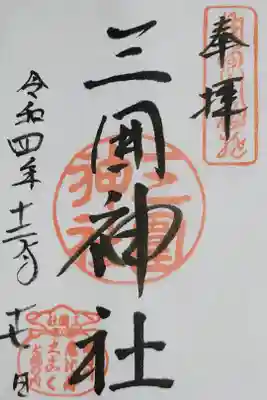 奉拝
三囲神社
三圍
神社
令和四年十二月
十七日